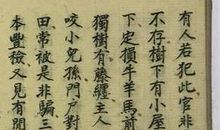 有人若犯此官非
不存樹下有小屋
下定損千羊馬前
獨樹有藤纏主人
咬小兒孫門戶對
田常被是非騙三
本豐檢又見有開